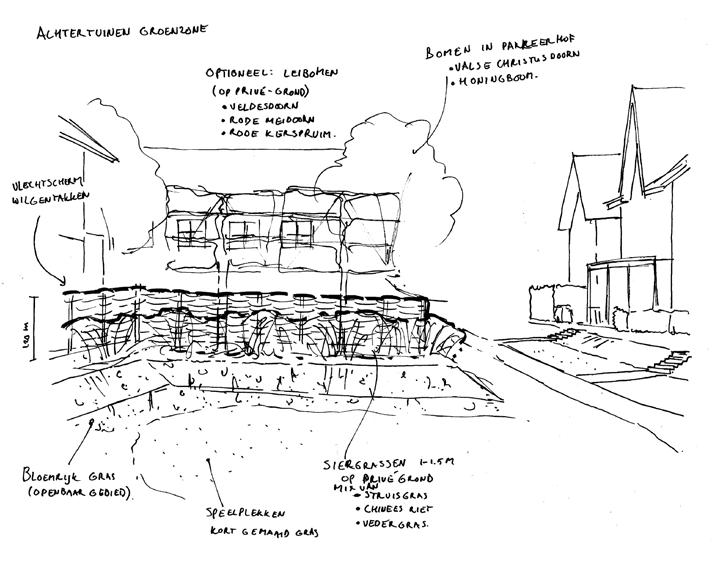 ACHTERTUINEN GROENZONE
OPTIONEEL: LEIBOMEN
(OP PRIVÉ-GROND)
• VELDESDOORN
• RODE MEIDOORN
• RODE KERSPRUIM.
BOMEN IN PARKEERHOF
• VALSE CHRISTUSDOORN
• HONINGBOOM.
VLECHTSCHERM
WILGENTAKKEN
1.80 M
BLOEMRIJK GRAS
(OPENBAAR GEBIED)
SPEELPLEKKEN
KORT GEMAAID GRAS
SIERGRASSEN 1-1.5M
OP PRIVÉ GROND
MIX VAN
• STRUISGRAS
• CHINEES RIET
• VEDERGRAS.